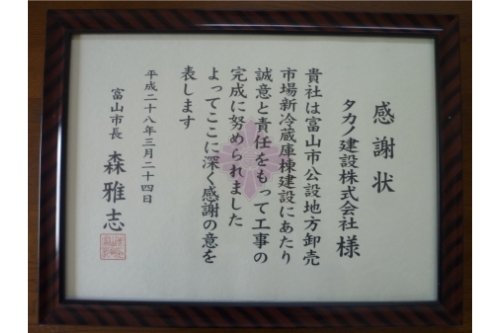 感謝状
タカノ建設株式会社 様
貴社は富山市公設地方卸売
市場新冷蔵庫棟建設にあたり
誠意と責任をもって工事の
完成に努められました
よってここに深く感謝の意を
表します
平成二十八年三月二十四日
富山市長 森雅志